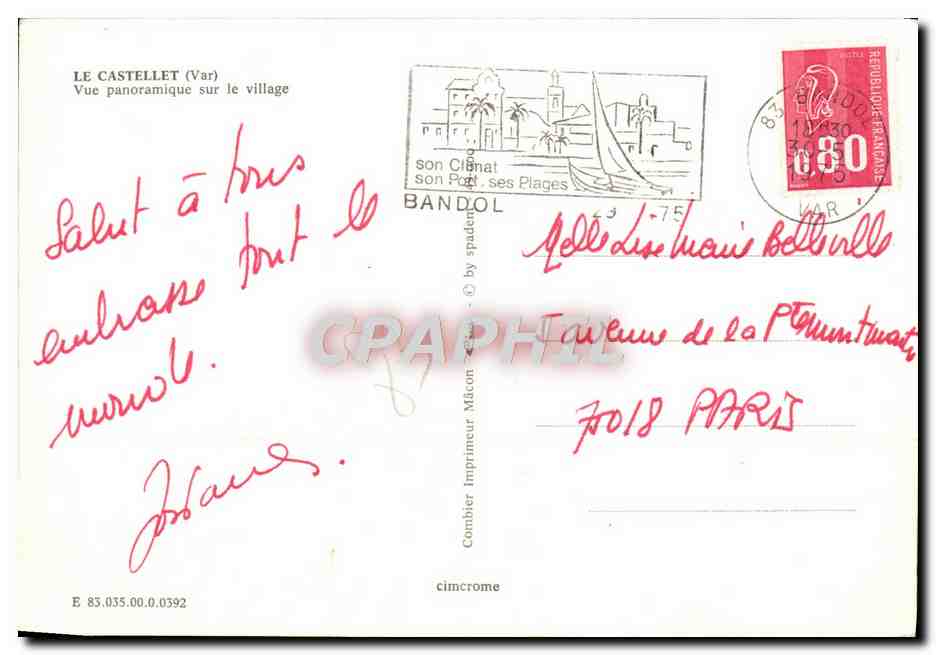 LE CASTELLET (Var)
Vue panoramique sur le village
Salut à tous
embrasse tout le
monde.
son Climat
son Port. ses Plages
BANDOL
29 -75
83 BANDOL
18H30
30-5
1975
VAR
POSTES
REPUBLIQUE FRANCAISE
0.80
Melle Lise Marie Belleville
7 avenue de la Pte Montmartre
75018 PARIS
Combier Imprimeur Mâcon - © by spadem
CPAPHIL
cimcrome
E 83.035.00.0.0392